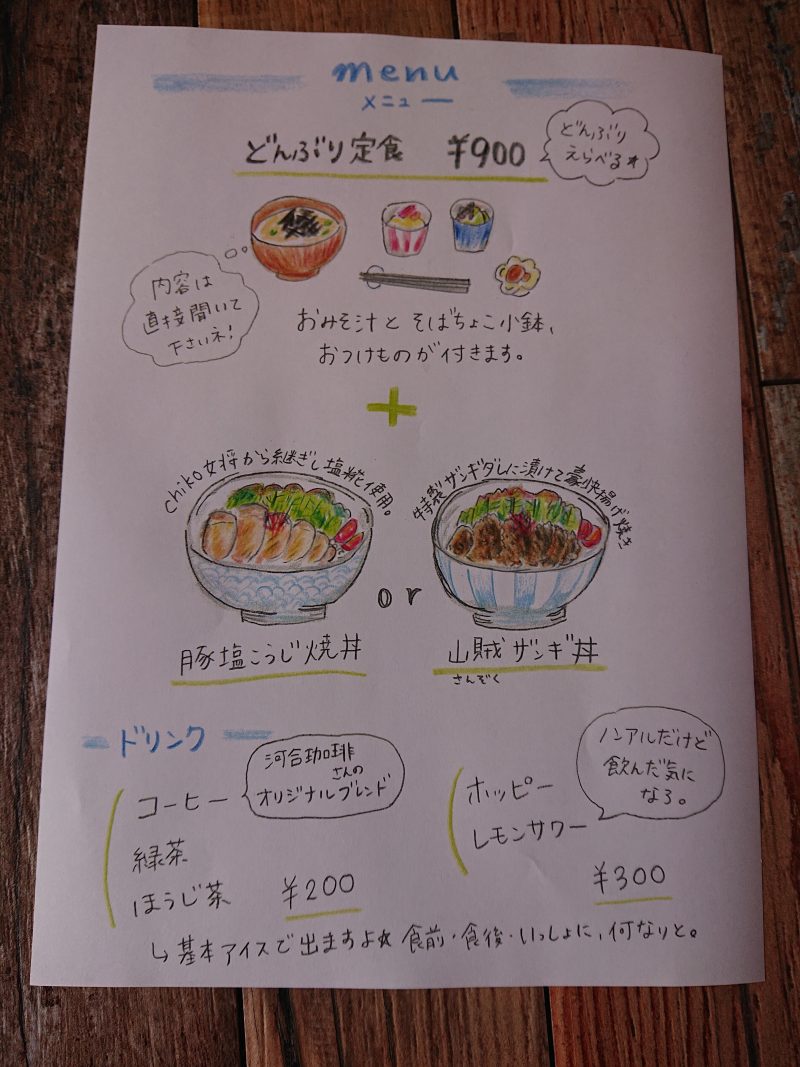 menu
メニュー
どんぶり定食 ¥900
どんぶり
えらべる★
内容は
直接聞いて
下さいネ!
おみそ汁と そばちょこ小鉢、
おつけものが付きます。
+
chiko女将から継ぎし塩糀使用。
特製ザンギダレに漬けて豪快揚げ焼き
or
豚塩こうじ焼丼
山賊ザンギ丼
さんぞく
ドリンク
コーヒー
河合珈琲
さんの
オリジナルブレンド
緑茶
ほうじ茶 ¥200
ホッピー
レモンサワー
ノンアルだけど
飲んだ気に
なる。
¥300
↳基本アイスで出ますよ★ 食前・食後・いっしょに、何なりと。